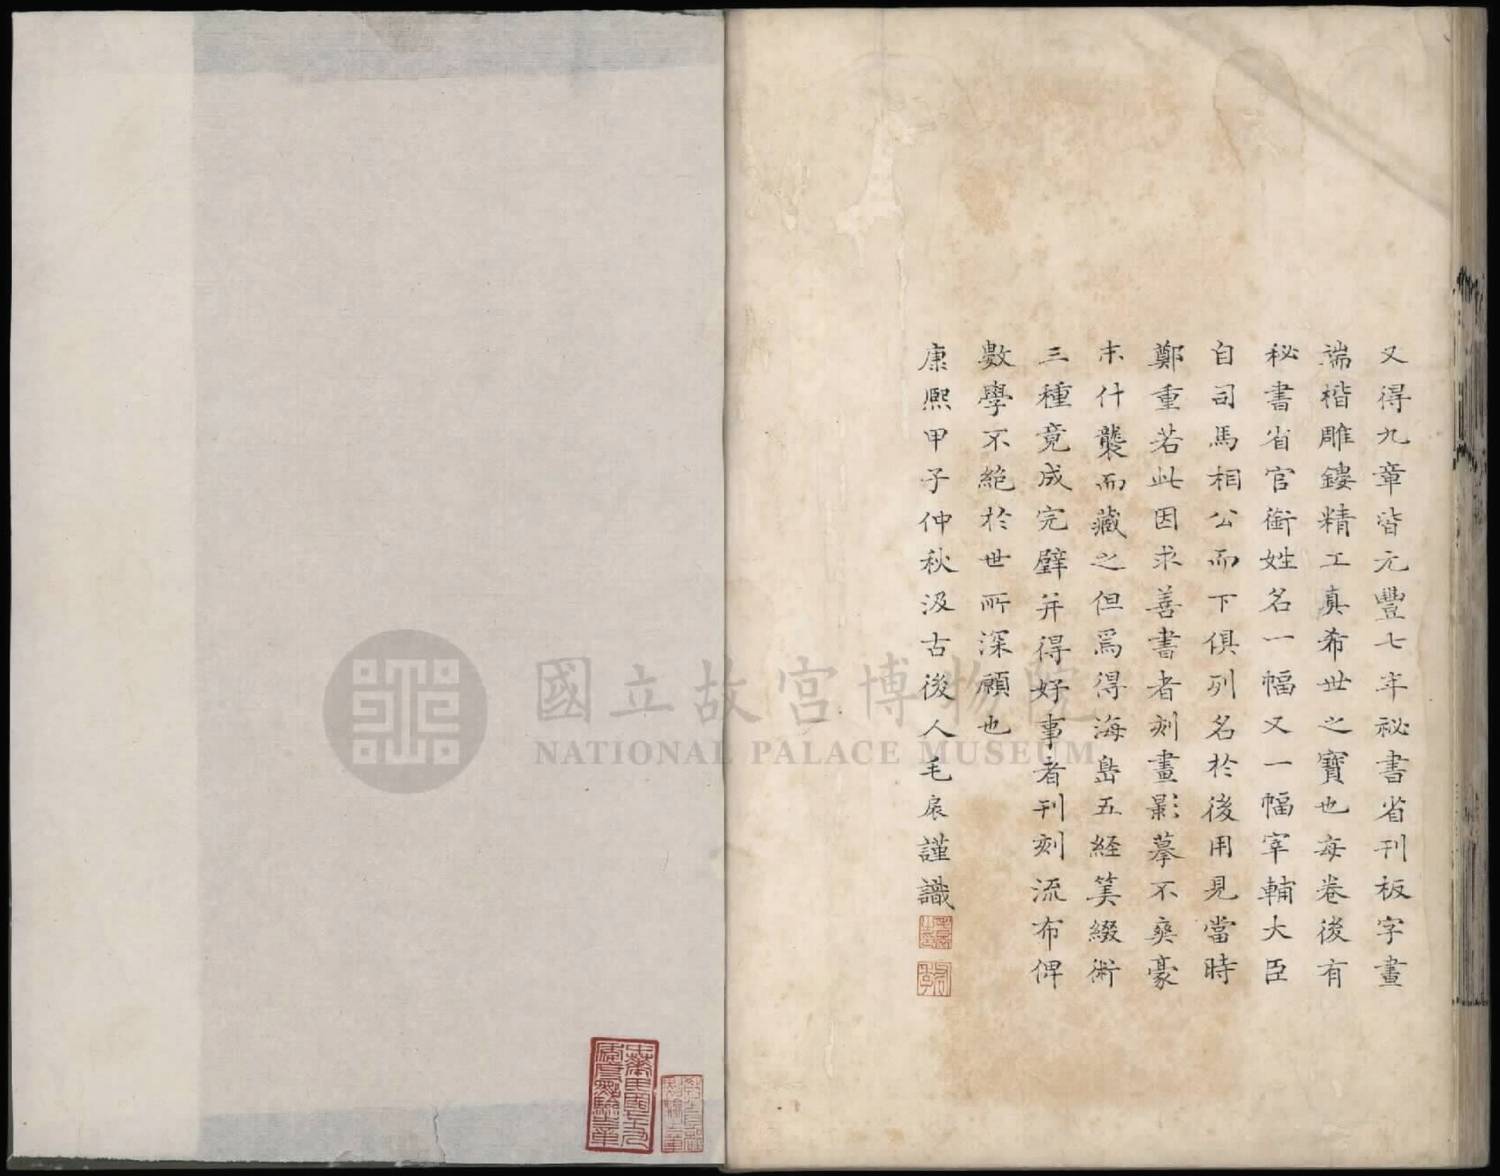 又得九章皆元豐七年秘書省刊板字畫
端楷雕鏤精工真希世之寶也每卷後有
秘書省官銜姓名一幅又一幅宰輔大臣
自司馬相公而下俱列名於後用見當時
鄭重若此因求善書者刻畫影摹不爽豪
末什襲而藏之但爲得海島五經筭綴術
三種竟成完璧并得好事者刊刻流布俾
數學不絕於世所深願也
康熙甲子仲秋汲古後人毛扆謹識
國立故宮博物院
NATIONAL PALACE MUSEUM